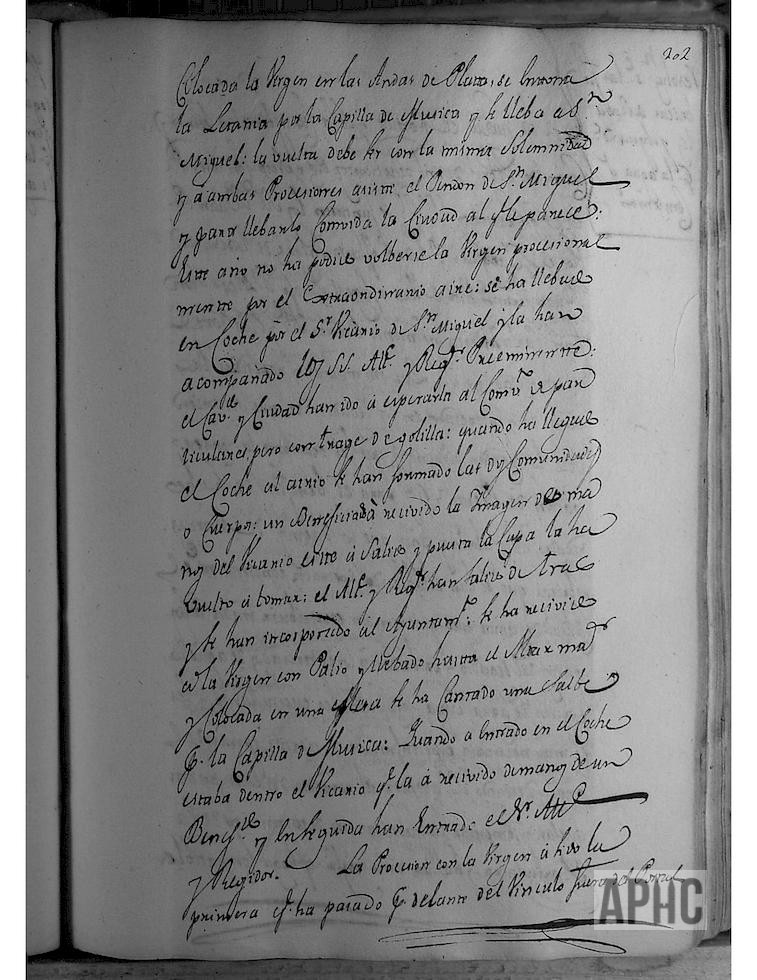 202
Colocada la Virgen en las Andas de Plata, se entona
la Letania por la Capilla de Musica y se lleba a Sn
Miguel: la vuelta debe ser con la misma Solemnidad
y a ambas Procesiones asiste el Pendon de Sn Miguel
y para llebarlo Combida la Ciudad al q le parece:
Este año no ha podido volberse la Virgen procesional
mente por el Extraordinario aire: se ha llebado
en Coche por el Sr Vicario de Sn Miguel y la han
acompañado los SS. Alc. y Reg. Preeminente:
el Cav. y Ciudad han ido a esperarla al Comv. de
pero con trage de golilla: quando ha llegado
el Coche al se han formado las dos Comunidades
o Cuerpos: un Beneficiado à recivido la Imagen de ma
nos del Vicario este à Salido y puesta la Capa la ha
vuelto à tomar: el Alc. y Reg. han salido de tras
y se han incorporado al Ayuntam.: se ha recivido
a la Virgen con Palio y llebado hasta el Altar mar
y Colocada en una Mesa se ha Cantado una Salbe
p. la Capilla de Musica: Quando a Entrado en el Coche
estaba dentro el Vicario q. la à recivido de manos de un
Benef. y en seguida han Entrado el Sr. Alc
y Regidor. La Procesion con la Virgen à sido la
primera q. ha pasado p. delante del Vinculo fuera del Portal
APHC